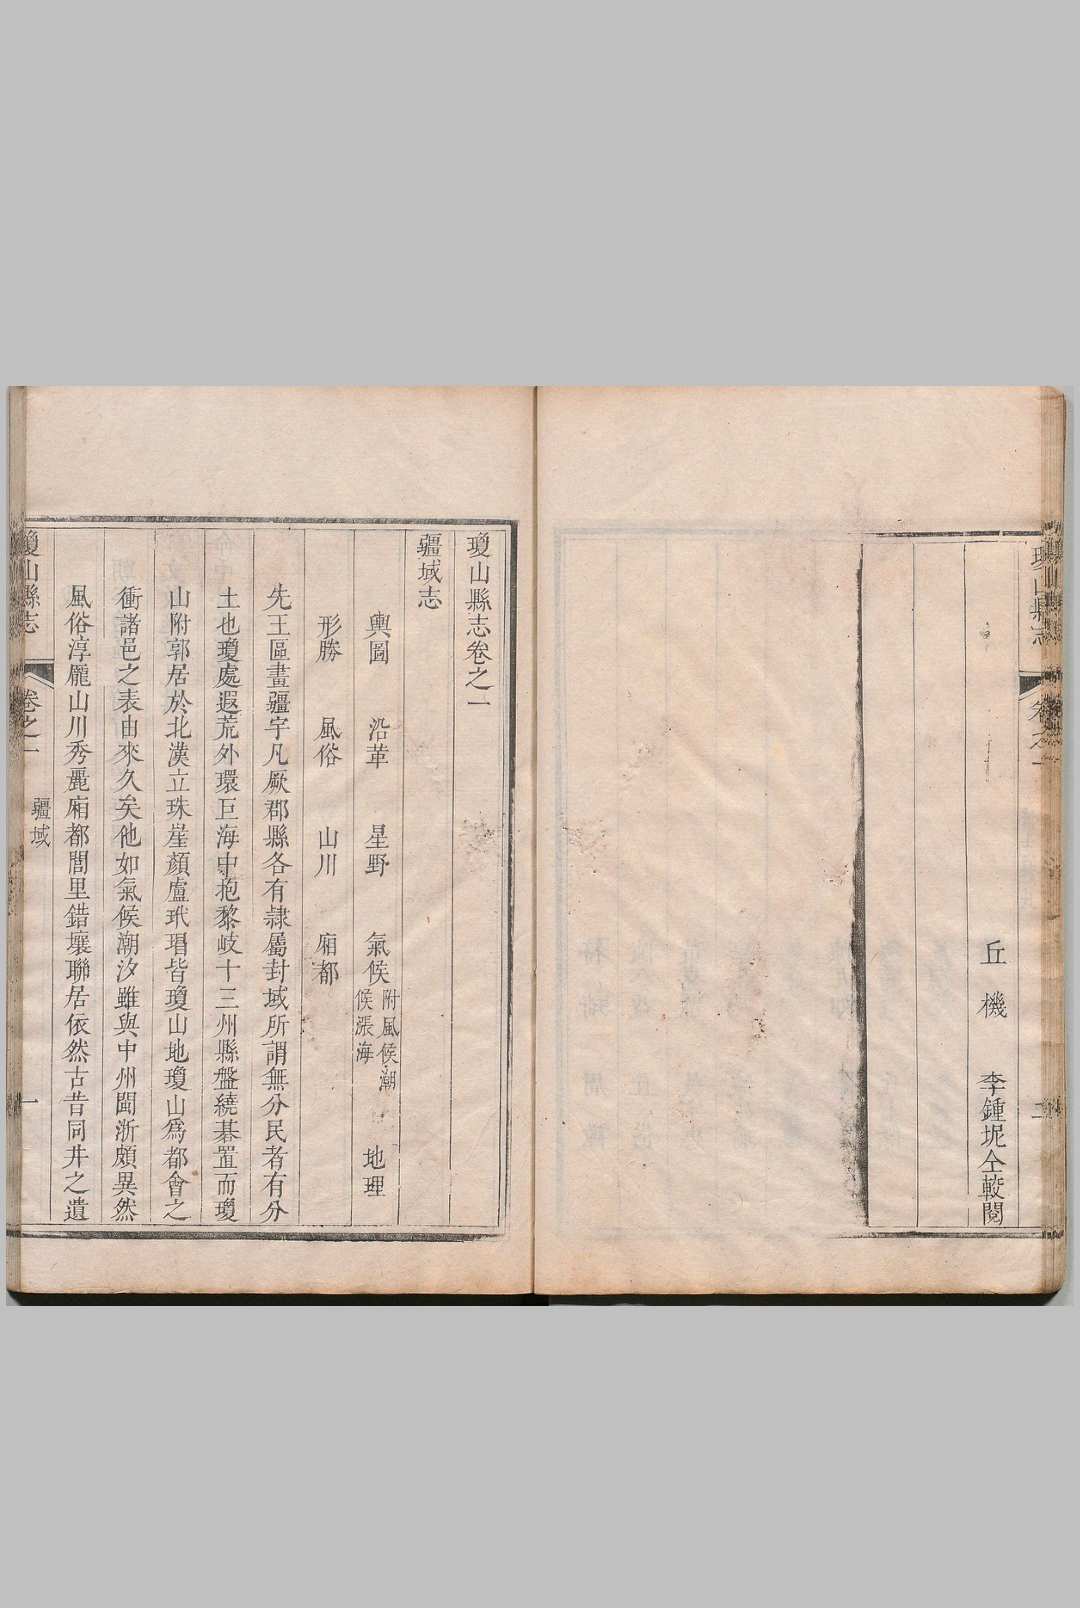 瓊山縣志
卷之一
二
丘機
李鍾坭仝較閱
瓊山縣志卷之一
疆域志
輿圖 沿革 星野 氣候 附風候潮候漲海 地理
形勝 風俗 山川 廂都
先王區畫疆宇凡厥郡縣各有隷屬封域所謂無分民者有分
土也瓊處遐荒外環巨海中抱黎岐十三州縣盤繞碁置而瓊
山附郭居於北漢立珠崖顏盧玳瑁皆瓊山地瓊山爲都會之
衝諸邑之表由來久矣他如氣候潮汐雖與中州閩浙頗異然
風俗淳龐山川秀麗廂都閭里錯壤聯居依然古昔同井之遺
瓊山縣志
卷之一
疆域
一